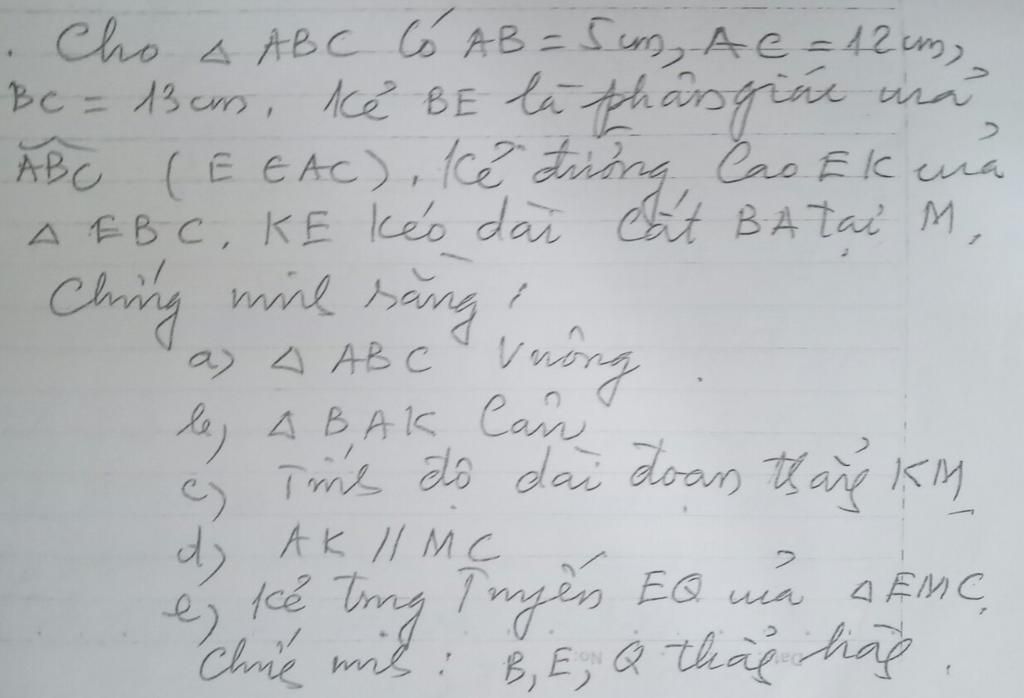 . Cho Δ ABC Có AB = 5 cm, AC = 12 cm,
BC = 13 cm. Kẻ BE là phân giác của
ABC ( E ∈ AC ), Kẻ đường Cao EK của
Δ EBC. KE kéo dài Cắt BA tại M.
Chứng minh rằng :
a) Δ ABC Vuông .
b) Δ BAK Cân
c) Tính độ dài đoạn thẳng KM
d) AK // MC
e) Kẻ trung Tuyến EQ của Δ EMC.
Chứng minh : B, E, Q thẳng hàng .